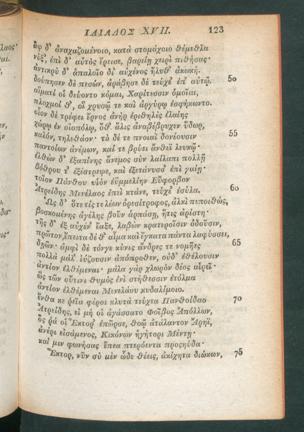 ΙΛΙΑΔΟΣ XVII. 123
ἂψ δ' ἀναχαζομένοιο, κατὰ στομάχοιο θέμεθλα
νύξ', ἐπὶ δ' αὐτὸς ἔρεισε, βαρείῃ χειρὶ πιθήσας·
ἀντικρὺ δ' ἁπαλοῖο δι' αὐχένος ἤλυθ' ἀκωκή.
δούπησεν δὲ πεσών, ἀράβησε δὲ τεύχε' ἐπ' αὐτῷ. 50
αἵματί οἱ δεύοντο κόμαι, Χαρίτεσσιν ὁμοῖαι,
πλοχμοί θ', οἳ χρυσῷ τε καὶ ἀργύρῳ ἐσφήκωντο.
οἷον δὲ τρέφει ἔρνος ἀνὴρ ἐριθηλὲς ἐλαίης
χώρῳ ἐν οἰοπόλῳ, ὅθ' ἅλις ἀναβέβρυχεν ὕδωρ,
καλόν, τηλεθάον· τὸ δέ τε πνοιαὶ δονέουσιν 55
παντοίων ἀνέμων, καί τε βρύει ἄνθεϊ λευκῷ·
ἐλθὼν δ' ἐξαπίνης ἄνεμος σὺν λαίλαπι πολλῇ
βόθρου τ' ἐξέστρεψε, καὶ ἐξετάνυσσ' ἐπὶ γαίῃ·
τοῖον Πάνθου υἱὸν ἐϋμμελίην Εὔφορβον
Ἀτρείδης Μενέλαος ἐπεὶ κτάνε, τεύχε' ἐσύλα. 60
Ὡς δ' ὅτε τίς τε λέων ὀρεσίτροφος, ἀλκὶ πεποιθώς,
βοσκομένης ἀγέλης βοῦν ἁρπάσῃ, ἥτις ἀρίστη·
τῆς δ' ἐξ αὐχέν' ἔαξε, λαβὼν κρατεροῖσιν ὀδοῦσιν,
πρῶτον, ἔπειτα δέ θ' αἷμα καὶ ἔγκατα πάντα λαφύσσει,
δῃῶν· ἀμφὶ δὲ τόνγε κύνες ἄνδρες τε νομῆες 65
πολλὰ μάλ' ἰύζουσιν ἀπόπροθεν, οὐδ' ἐθέλουσιν
ἀντίον ἐλθέμεναι· μάλα γὰρ χλωρὸν δέος αἱρεῖ·
ὣς τῶν οὔτινι θυμὸς ἐνὶ στήθεσσιν ἐτόλμα
ἀντίον ἐλθέμεναι Μενελάου κυδαλίμοιο.
ἔνθα κε ῥεῖα φέροι κλυτὰ τεύχεα Πανθοίδαο 70
Ἀτρείδης, εἰ μή οἱ ἀγάσσατο Φοῖβος Ἀπόλλων,
ὅς ῥά οἱ Ἕκτορ' ἐπῶρσε, θοῷ ἀτάλαντον Ἄρηϊ,
ἀνέρι εἰσάμενος, Κικόνων ἡγήτορι Μέντῃ·
καί μιν φωνήσας ἔπεα πτερόεντα προσηύδα·
Ἕκτορ, νῦν σὺ μὲν ὧδε θέεις, ἀκίχητα διώκων, 75